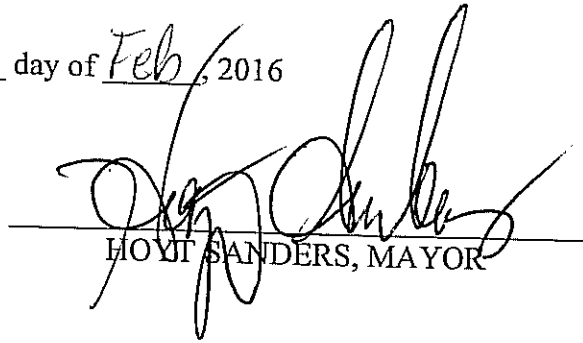 day of Feb, 2016
HOYT SANDERS, MAYOR